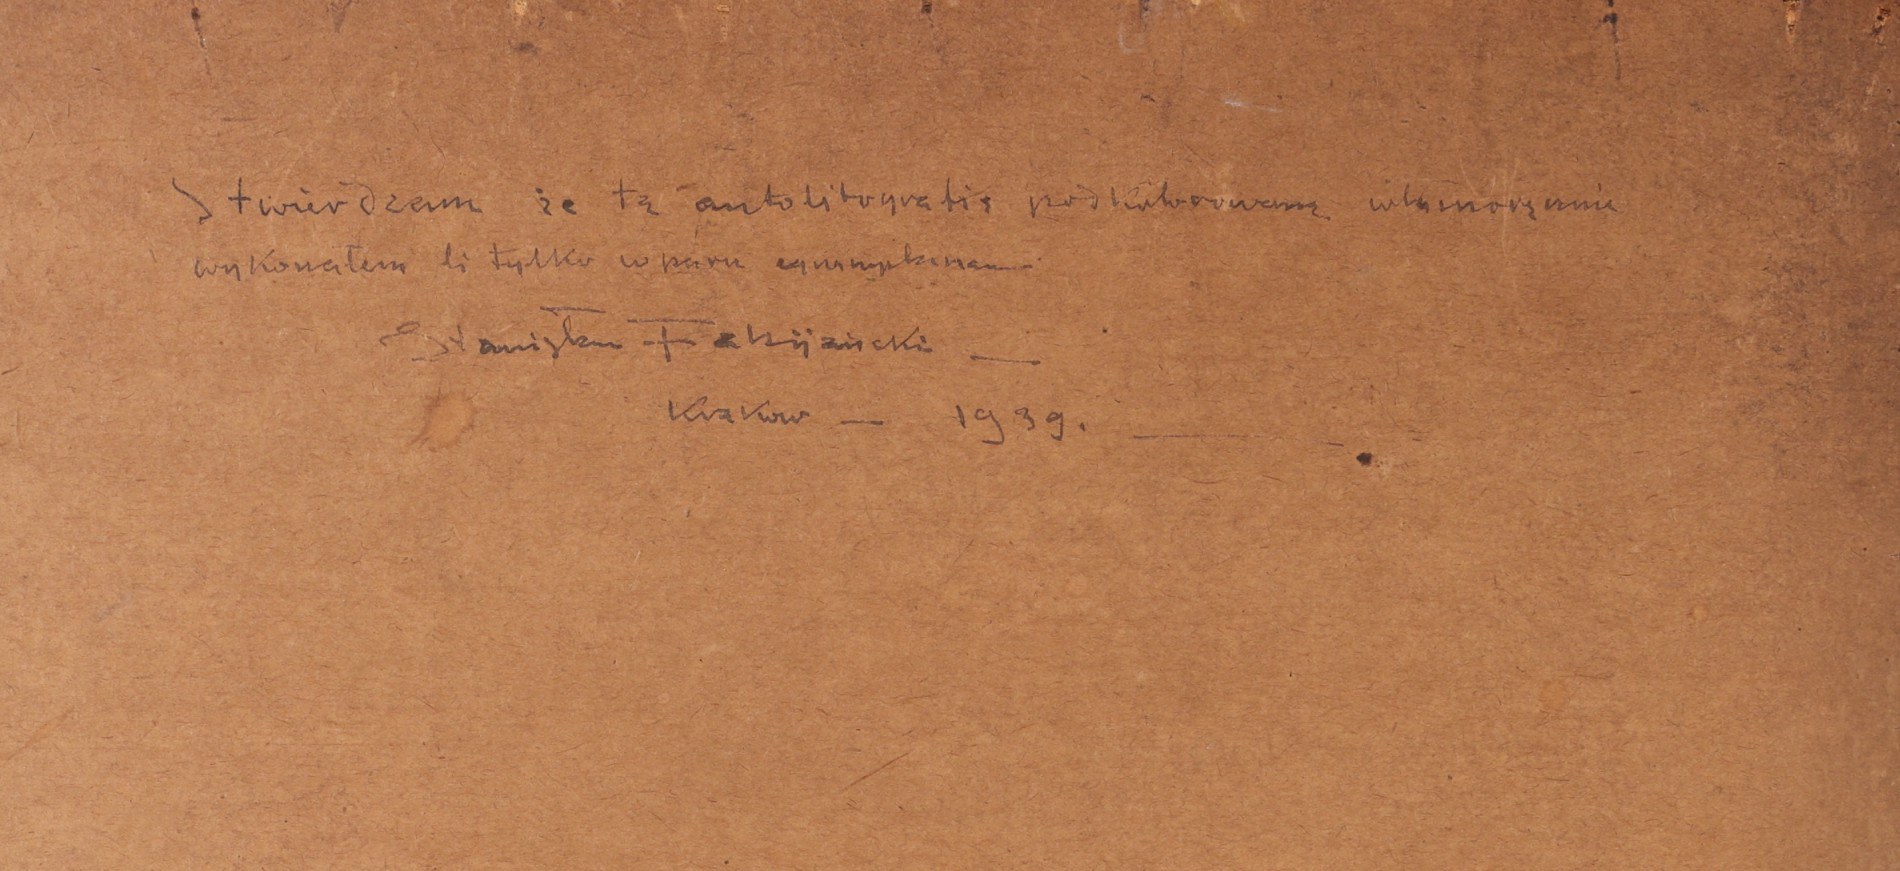 Stwierdzam że tą autolitografię podkolorowaną własnoręcznie
wykonałem li tylko w paru egzemplarzach
Stanisław Fabijański —
Krakow — 1939.